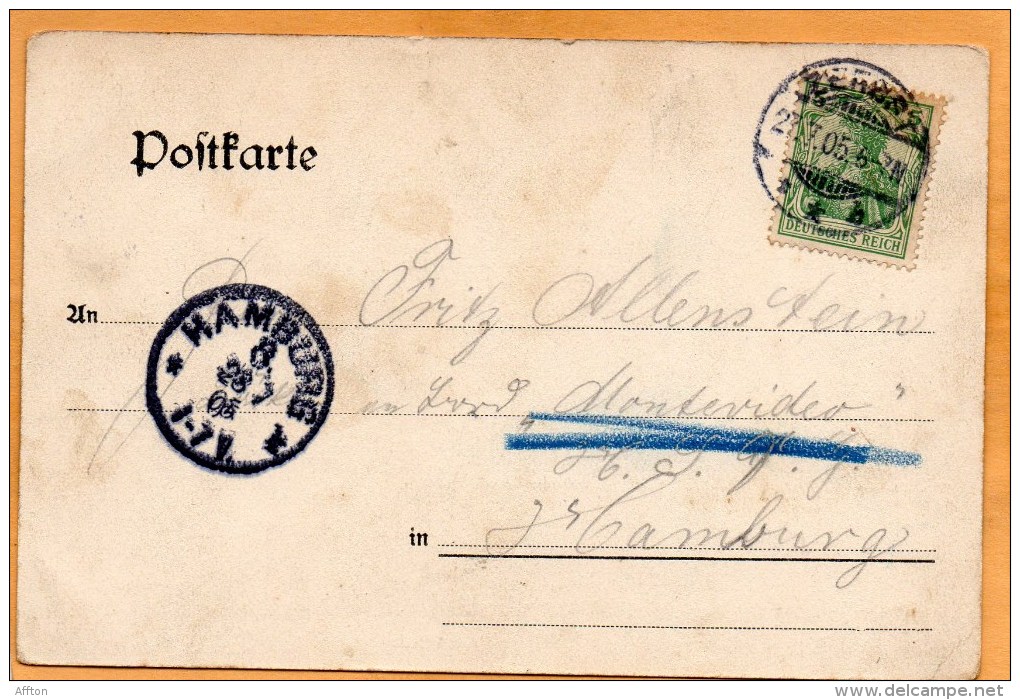 Postkarte
ZERBST
27.7.05.6-7N
* b
5
DEUTSCHES REICH
An
Fritz Allenstein
an Bord „Montevideo"
in Hamburg
* HAMBURG 1
28
7
05
1-7V
Affton
www.delcampe.net